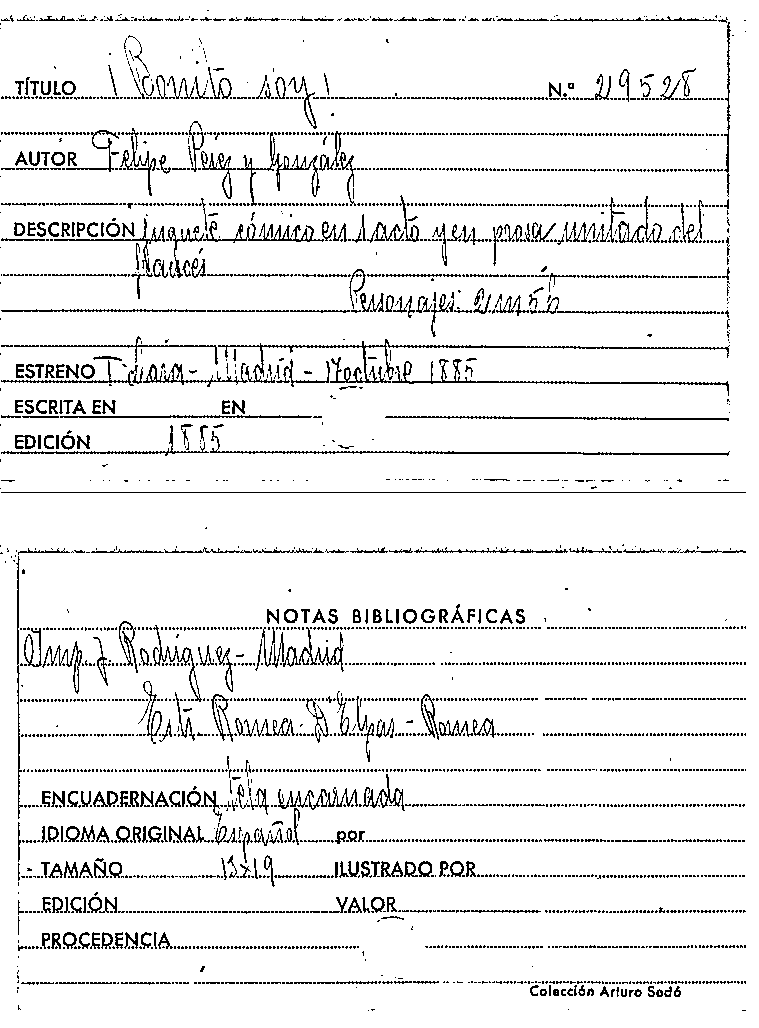 TÍTULO ¡Bonito soy! N.º 219528
AUTOR Felipe Pérez y González
DESCRIPCIÓN Juguete cómico en 1 acto y en prosa imitado del
francés
Personajes: 2 m 5 h
ESTRENO T. Lara - Madrid - 17 octubre 1885
ESCRITA EN EN
EDICIÓN 1885
NOTAS BIBLIOGRÁFICAS
Imp J. Rodríguez - Madrid
Estr. Romea - D'Elpas - Romea
ENCUADERNACIÓN tela encarnada
IDIOMA ORIGINAL Español por
TAMAÑO 13x19 ILUSTRADO POR
EDICIÓN VALOR
PROCEDENCIA
Colección Arturo Sedó